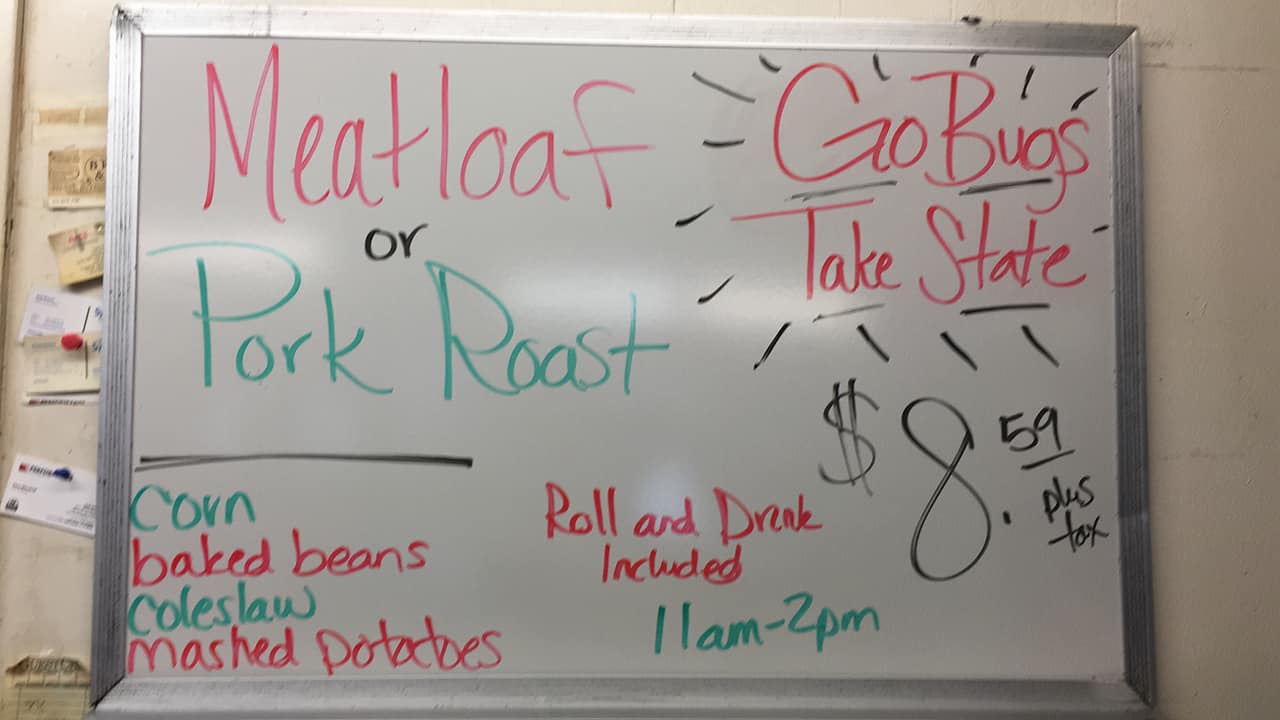 Meatloaf
or
Pork Roast
Go Bugs
Take State
$8.59
plus
tax
Corn
baked beans
Coleslaw
mashed potatoes
Roll and Drink
Included
11am-2pm